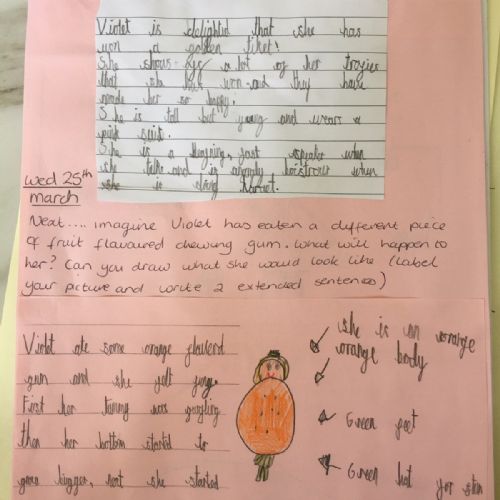 Violet is delightid that she has
won a golden ticket!
She shows a lot of her trogies
that she has won and they have
made her so happy.
She is tall but young and wears a
pink suit.
She is a fast speaker when
she talks and is boistrous when
she is
Wed 25th
march
Next.... imagine Violet has eaten a different piece
of fruit flavoured chewing gum. What will happen to
her? Can you draw what she would look like (Label
your picture and write 2 extended sentences)
Violet ate some orange
gum and she felt
First her tummy was
then her bottom started to
grow bigger, next she started
she is an orange
orange body
Green feet
Green hat for stem